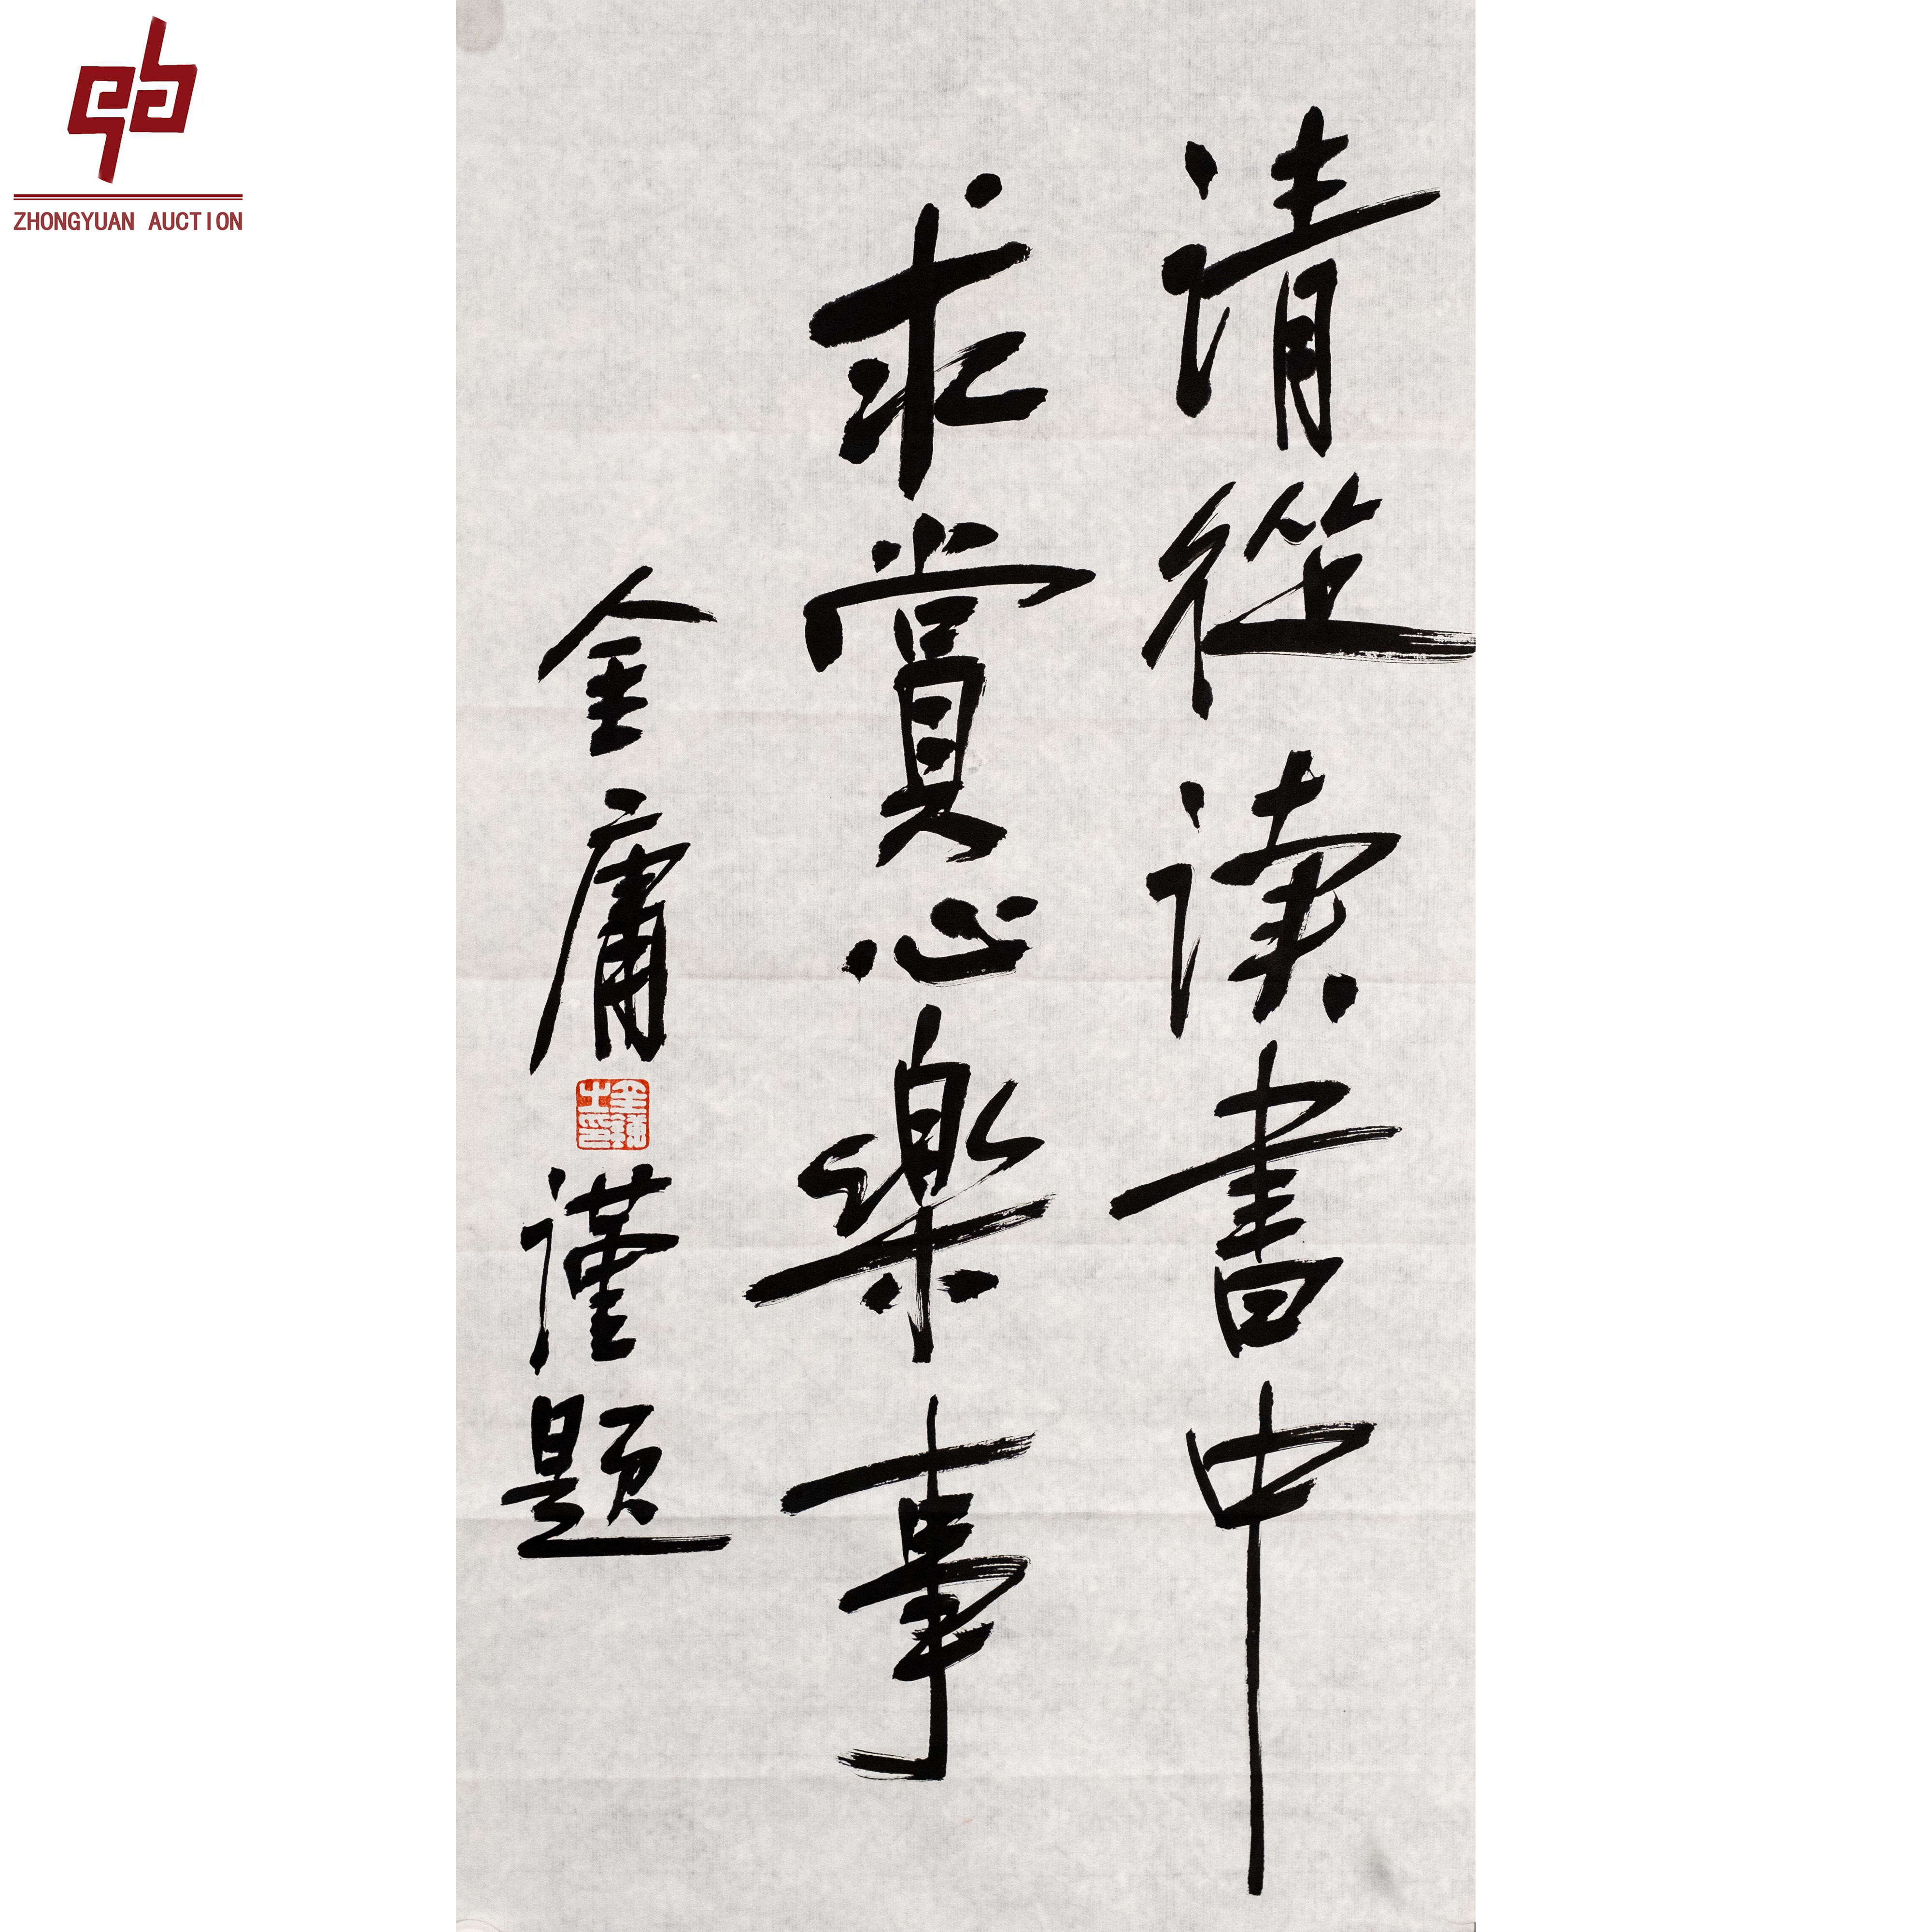 ZHONGYUAN AUCTION
请從读書中
求賞心樂事
金庸
谨题